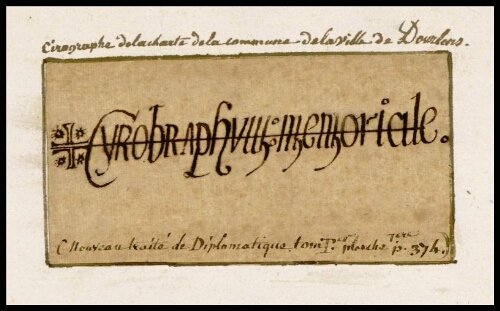 Cirographe de la charte de la commune de la Ville de Dourlens.
CYROBRAPHVM:MEMORIALE.
( Nouveau traité de Diplomatique, tom 1.er planche 1ere p. 374.)